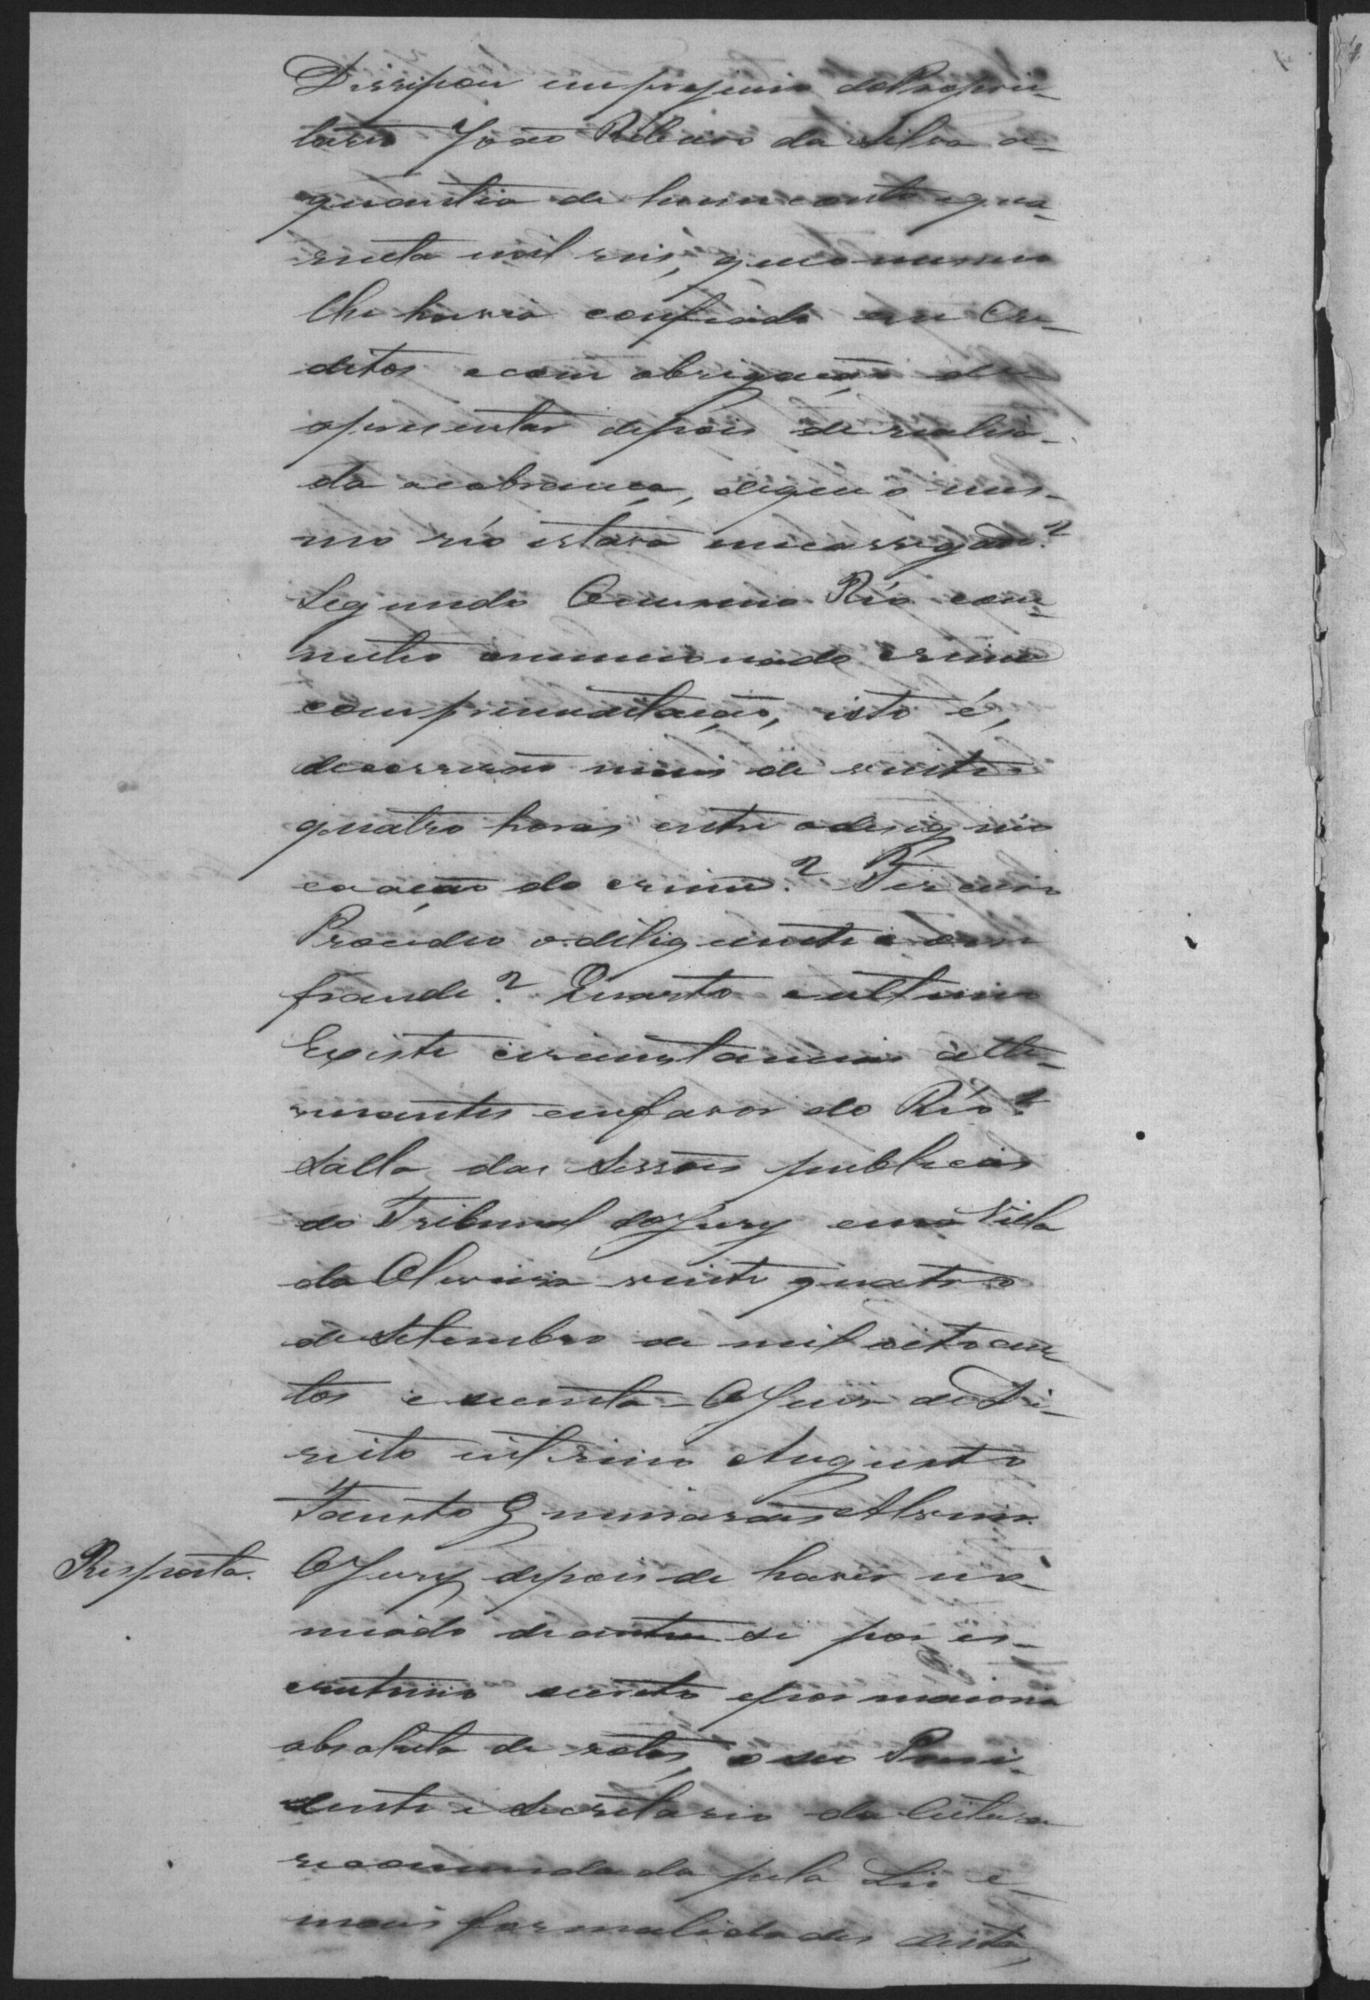 Dissipou em prejuiso do Proprie-
tario João Ribeiro da Silva a-
quantia de hum conto e qua-
renta mil reis, que o mesmo
lhe havia confiado em Cre-
ditos e com obrigação de
apresentar depois de realisa-
da a cobrança, de que o mes-
mo réo estava encarregado?
Segundo O mesmo Réo com-
metteo o mencionado crime
com premeditação, isto é,
decorrerão mais de vinte e
quatro horas entre o designio
e a acção do crime? Terceiro
Procedeo o deliquente com
fraude? Quarto e ultimo
Existe circunstancias atte-
nuantes em favor do Réo?
Salla das Sessões publicas
do Tribunal do Jury em a Villa
da Oliveira vinte quatro
de Setembro de mil oitocen
tos e secenta - O Juiz de Di-
reito interino Augusto
Fausto Guimarães Alvim.
Resposta. O Jury depois de haver no-
meado de entre si por es-
crutinio secreto e por maioria
absoluta de votos, o seo Presi-
dente e Secretario da leitura
recommendada pela Lei e-
mais formalidades desta,